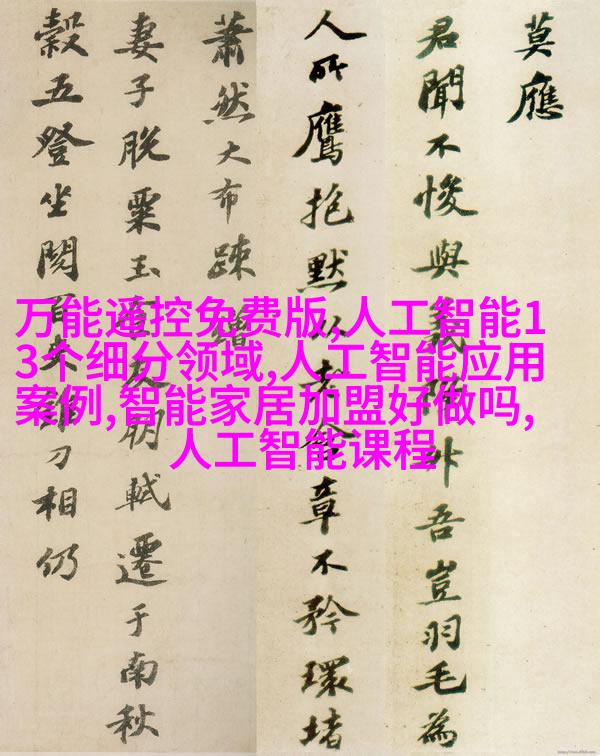 莫應
君聞不悛與義外吾豈羽毛為
人所鷹抱默以老含章不矜環堵
蕭然大布疎繒
妻子脫粟玉食友朋軾遷于南秋
穀五登坐閱百夫刀相仍
万能遥控免费版,人工智能1
3个细分领域,人工智能应用
案例,智能家居加盟好做吗,
人工智能课程